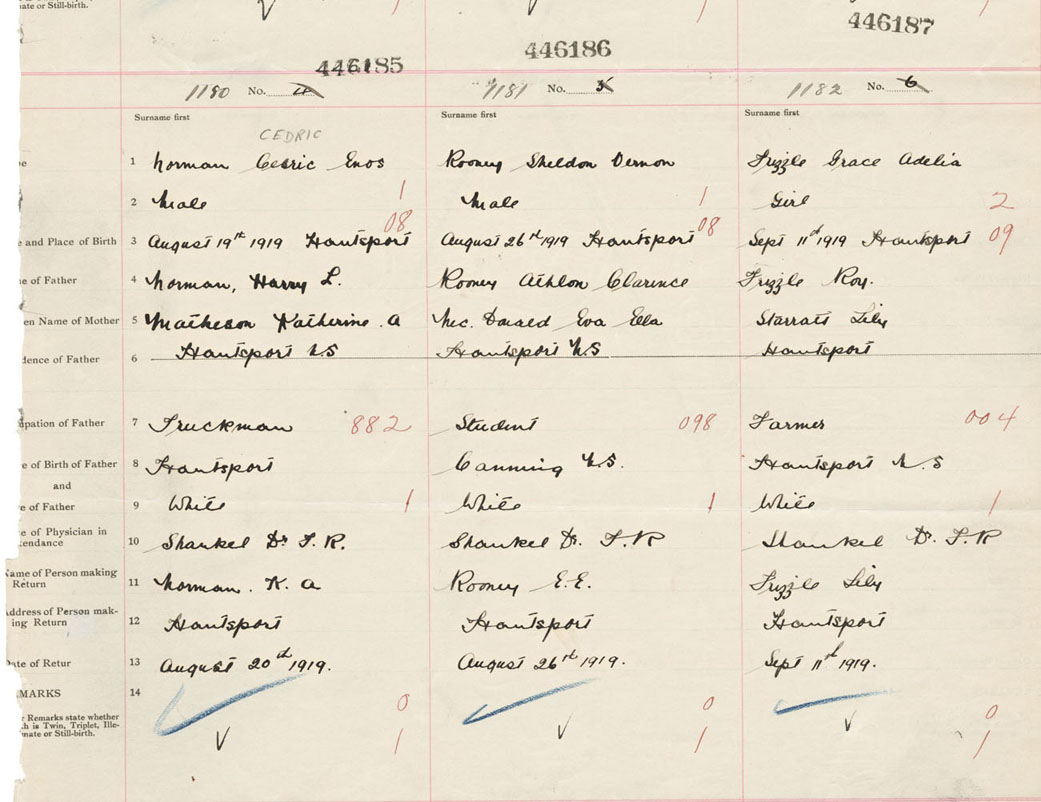 ate or Still-birth.
446185 446186 446187
1180 No. 4 1181 No. 5 1182 No. 6
Surname first Surname first Surname first
CEDRIC
1 Norman Cedric Enos Rooney Sheldon Vernon Frizzle Grace Adelia
2 Male 1 Male 1 Girl 2
08 08 09
e and Place of Birth 3 August 19th 1919 Hantsport August 26rd 1919 Hantsport Sept 11rd 1919 Hantsport
e of Father 4 Norman, Harry L. Rooney Athlon Clarence Frizzle Roy.
en Name of Mother 5 Matheson Katherine. a Mc. Donald Eva Ella Starratt Lily
dence of Father 6 Hantsport N.S Hantsport N.S Hantsport
pation of Father 7 Truckman 882 Student 098 Farmer 004
e of Birth of Father 8 Hantsport Canning N.S. Hantsport N.S
and
e of Father 9 White 1 White 1 White 1
e of Physician in
tendance 10 Shankel Dr F.R. Shankel Dr. F.R Shankel Dr. F.R
Name of Person making
Return 11 Norman. K. a Rooney E.E. Frizzle Lily
Address of Person mak-
ing Return 12 Hantsport Hantsport Hantsport
Date of Retur 13 August 20th 1919. August 26rd 1919. Sept 11rd 1919.
MARKS 14
0 0 0
r Remarks state whether
h is Twin, Triplet, Ille-
mate or Still-birth.
1 1 1